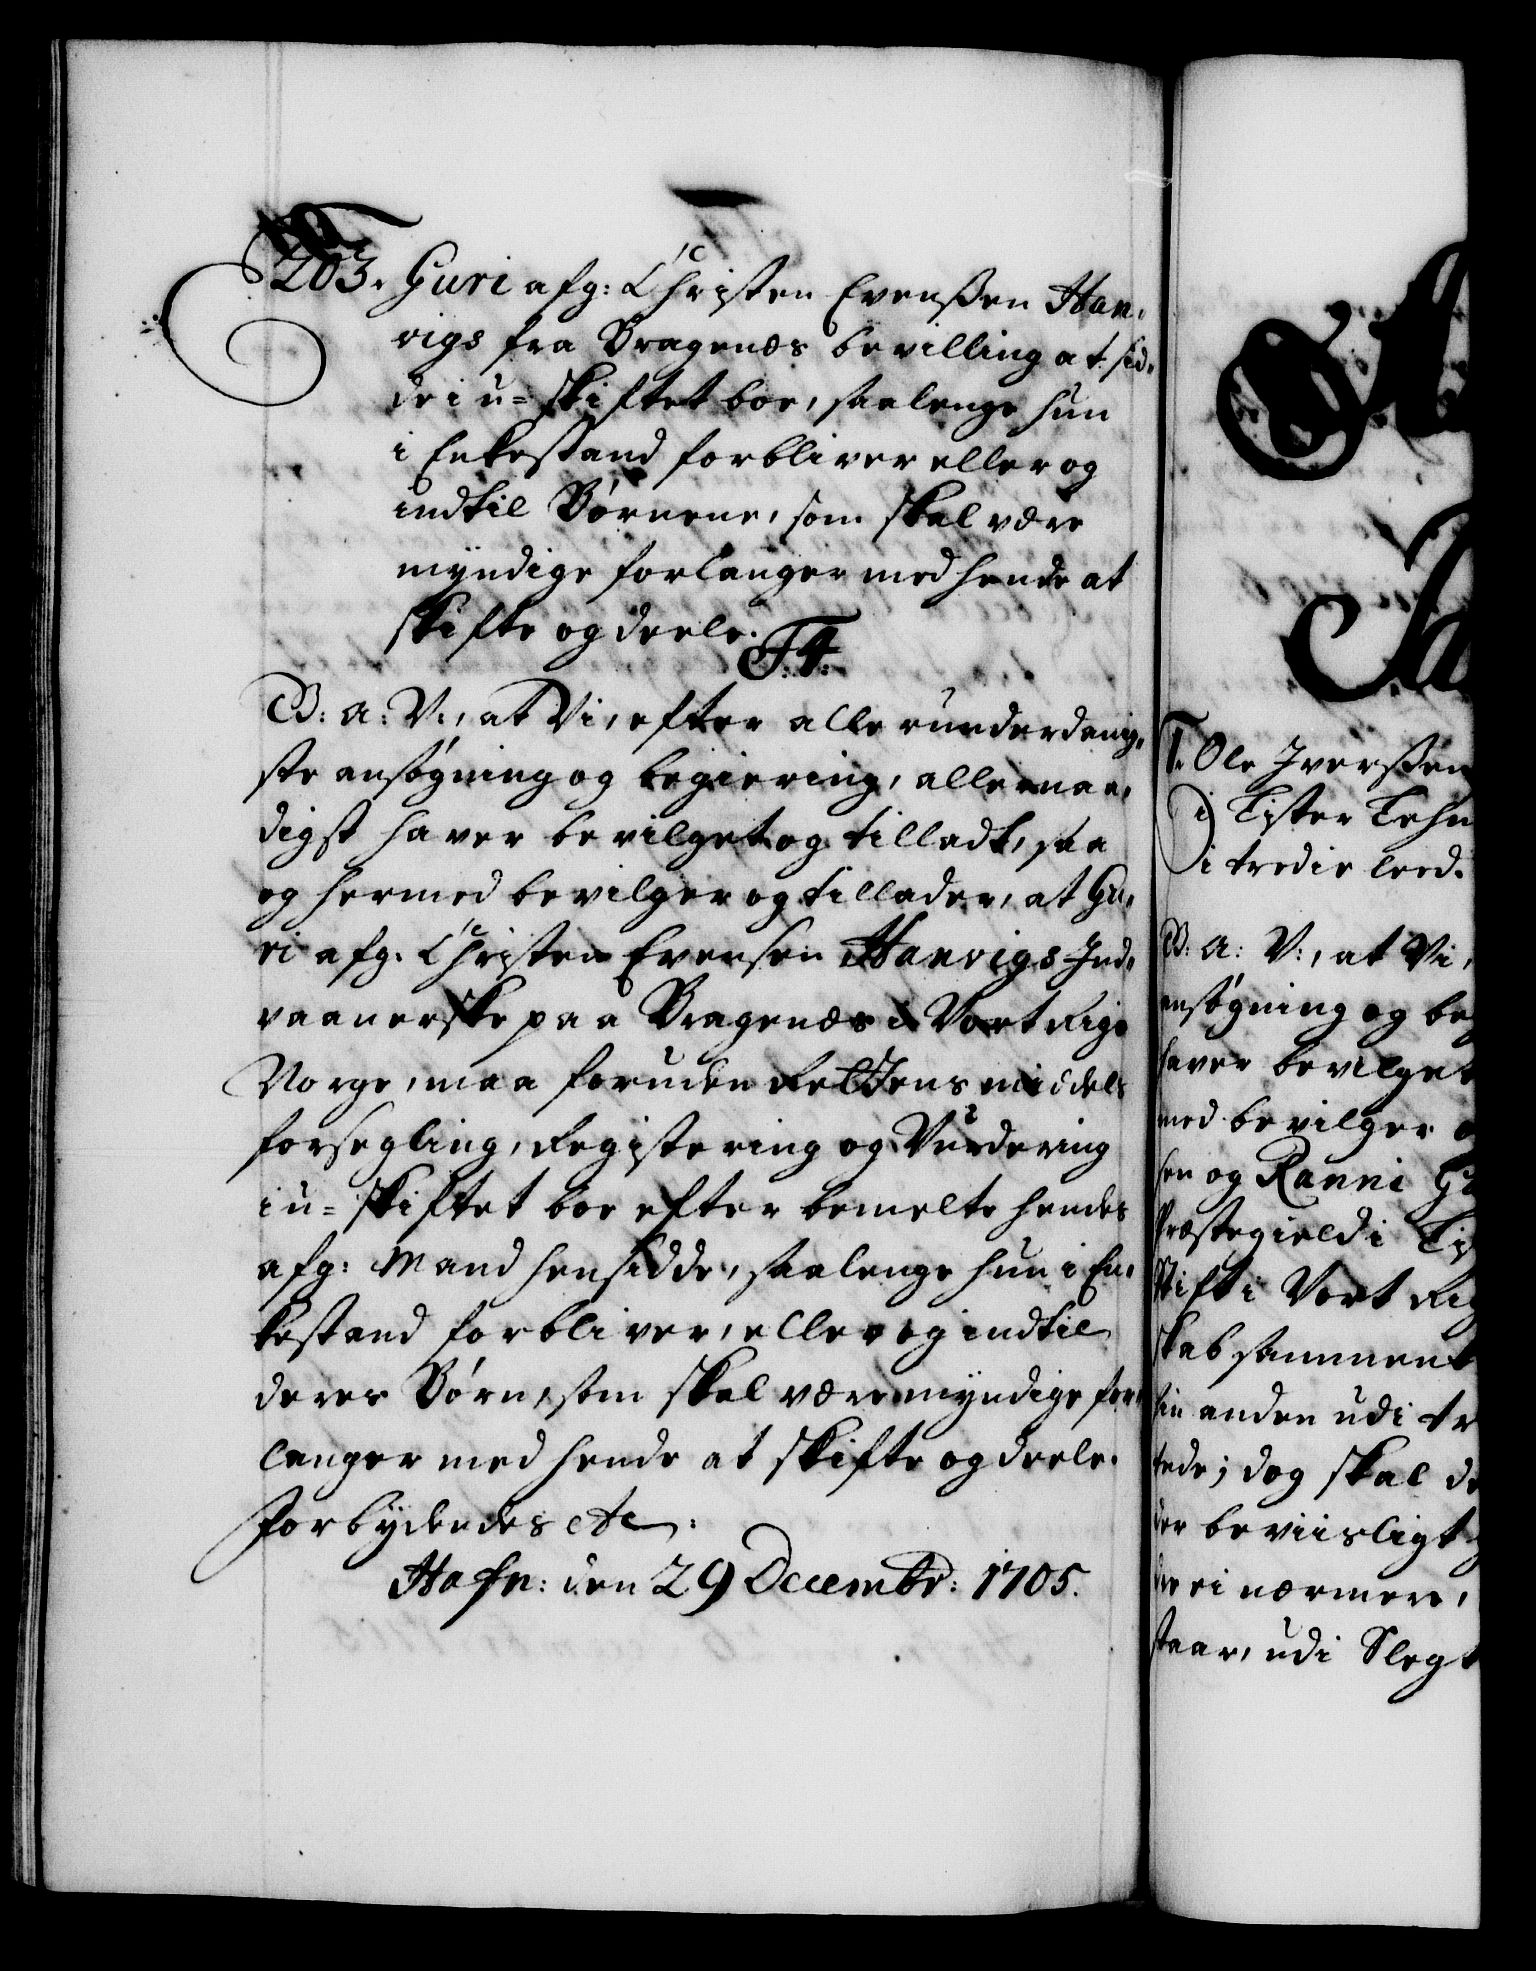 203. Guri afg: Christen Evenssen Han,
vigs fra Bragenæs bevilling at sid,
de i u=skiftet boe, saalenge hun
i Enkestand forbliver eller og
indtil Børnene, som skal være
myndige forlanger med hende at
skifte og deele. F4.
B: A: V:, at Vi, efter allerunderdanig,
ste ansøgning og begiering, allernaa,
digst haver bevilget og tilladt, saa
og hermed bevilger og tillader, at Gu,
ri afg. Christen Evensen Hanvigs Ind,
vaanerske paa Bragenæs i Vort Rige
Norge, maa foruden Rettens middels
forsegling, Registering og Vurdering
i u=skiftet boe efter bemelte hendes
afg: Mand hensidde, saalenge hun i En,
kestand forbliver, eller og indtil
deres Børn, som skal være myndige for,
langer med hende at skifte og deele.
Forbydendes etc:
Hafn: den 29 Decembr: 1705.
A
Ja
1. Ole Iverssen
i Tister Tehn
i tredie leed.
B: A: V:, at Vi,
ansøgning og beg
haver bevilget
med bevilger o
sen og Ranni Gu
Præstegield i Tis
Stift i Vort Rig
skab sammen
hin anden udi tr
tede; dog skal de
der beviisligt
der ei nærmere,
staar, udi Slegt